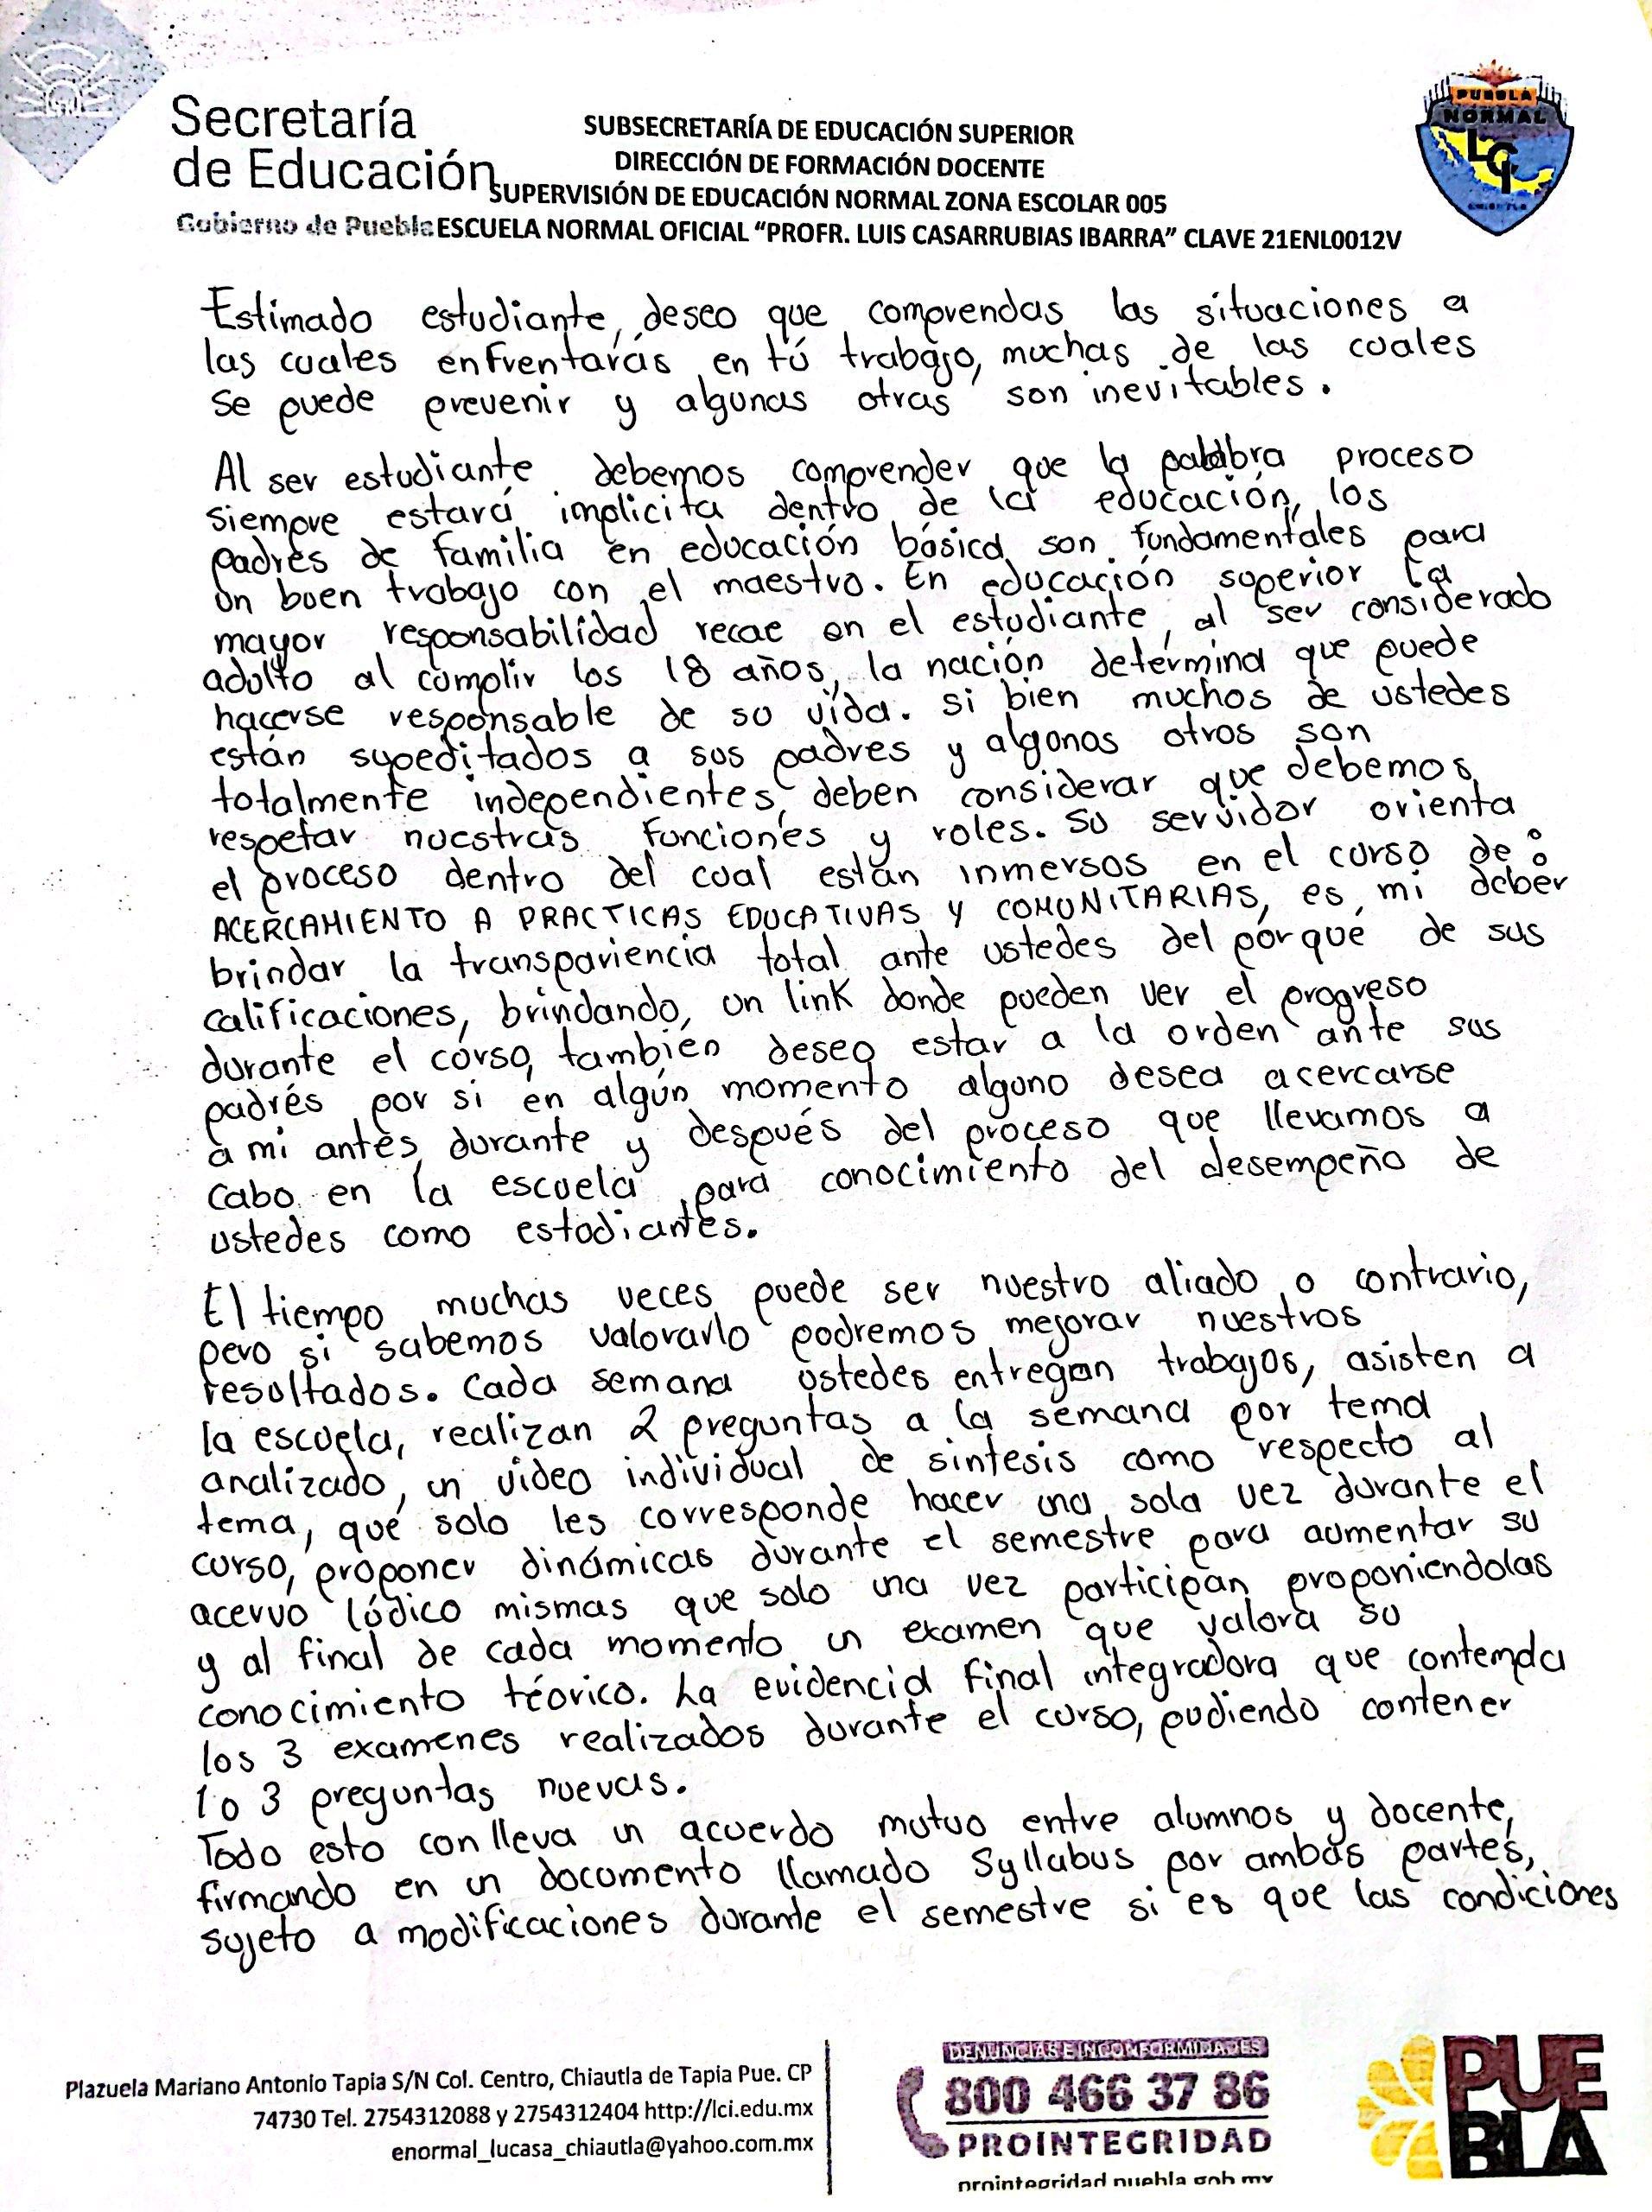 Secretaría
de Educación
Gobierno de Puebla
SUBSECRETARÍA DE EDUCACIÓN SUPERIOR
DIRECCIÓN DE FORMACIÓN DOCENTE
SUPERVISIÓN DE EDUCACIÓN NORMAL ZONA ESCOLAR 005
ESCUELA NORMAL OFICIAL “PROFR. LUIS CASARRUBIAS IBARRA” CLAVE 21ENL0012V
PUEBLA
NORMAL
LCI
Estimado estudiante, deseo que comprendas las situaciones a
las cuales enfrentarás en tú trabajo, muchas de las cuales
se puede prevenir y algunas otras son inevitables.
Al ser estudiante debemos comprender que la palabra proceso
siempre estará implicita dentro de la educación, los
padres de familia en educación básica son fundamentales para
un buen trabajo con el maestro. En educación superior la
mayor responsabilidad recae en el estudiante, al ser considerado
adulto al cumplir los 18 años, la nación determina que puede
hacerse responsable de su vida. Si bien muchos de ustedes
están supeditados a sus padres y algunos otros son
totalmente independientes, deben considerar que debemos
respetar nuestras funciones y roles. Su servidor orienta
el proceso dentro del cual están inmersos en el curso de:
ACERCAMIENTO A PRACTICAS EDUCATIVAS Y COMUNITARIAS, es mi deber
brindar la transpariencia total ante ustedes del porqué de sus
calificaciones, brindando, un link donde pueden ver el progreso
durante el curso, tambien deseo estar a la orden ante sus
padrés por si en algún momento alguno desea acercarse
a mi antes, durante y después del proceso que llevamos a
cabo en la escuela para conocimiento del desempeño de
ustedes como estudiantes.
El tiempo muchas veces puede ser nuestro aliado o contrario,
pero si sabemos valorarlo podremos mejorar nuestros
resultados. Cada semana ustedes entregan trabajos, asisten a
la escuela, realizan 2 preguntas a la semana por tema
analizado, un video individual de sintesis como respecto al
tema, que solo les corresponde hacer una sola vez durante el
curso, proponer dinámicas durante el semestre para aumentar su
acervo lúdico mismas que solo una vez participan proponiendolas
y al final de cada momento un examen que valora su
conocimiento téorico. La evidencia final integradora que contempla
los 3 examenes realizados durante el curso, pudiendo contener
1 o 3 preguntas nuevas.
Todo esto conlleva un acuerdo mutuo entre alumnos y docente,
firmando en un documento llamado Syllabus por ambas partes,
sujeto a modificaciones durante el semestre si es que las condiciones
Plazuela Mariano Antonio Tapia S/N Col. Centro, Chiautla de Tapia Pue. CP
74730 Tel. 2754312088 y 2754312404 http://lci.edu.mx
enormal_lucasa_chiautla@yahoo.com.mx
DENUNCIAS E INCONFORMIDADES
800 466 37 86
PROINTEGRIDAD
prointegridad.puebla.gob.mx
PUE
BLA